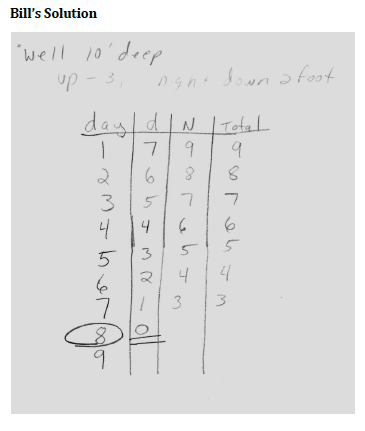 Bill's Solution
"Well 10' deep
up - 3, night down 2 foot
day d N Total
1 7 9 9
2 6 8 8
3 5 7 7
4 4 6 6
5 3 5 5
6 2 4 4
7 1 3 3
8 0
9